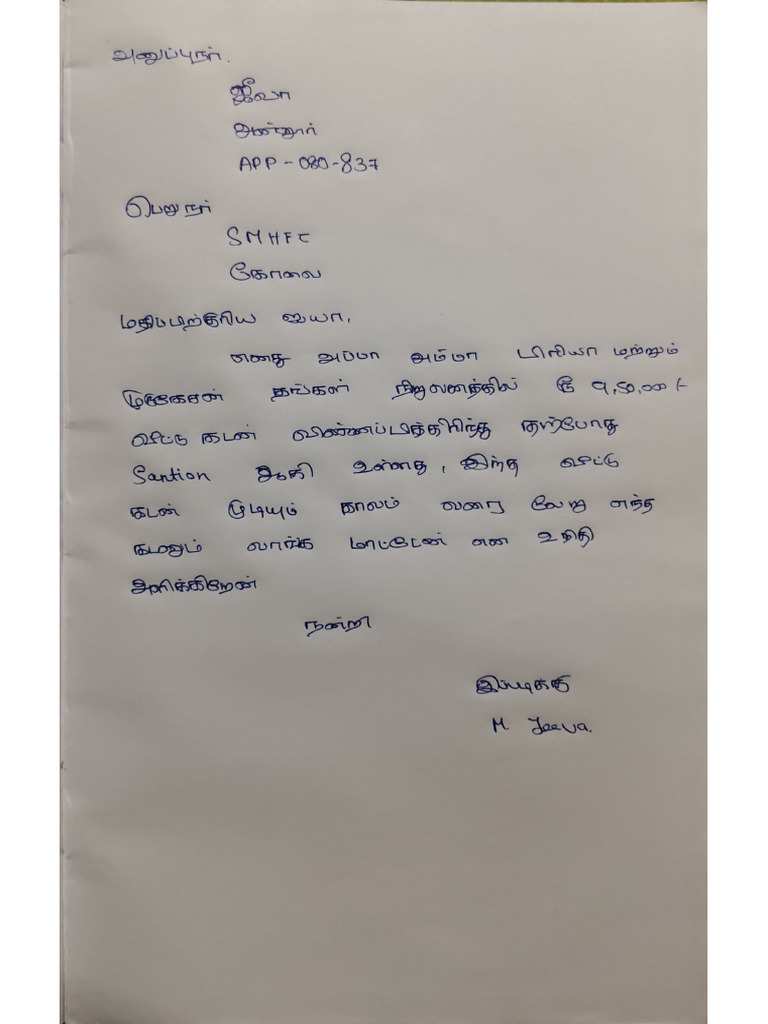 அனுப்புநர்.
ஜீவா
அன்னூர்
APP - 080-837
பெறுநர்
SMHFC
கோவை
மதிப்பிற்குரிய ஐயா,
எனது அப்பா அம்மா பிரியா மற்றும்
முருகேசன் தங்கள் நிறுவனத்தில் ரூ 9,50,000/-
வீட்டு கடன் விண்ணப்பத்திருந்து தற்போது
Santion ஆகி உள்ளது, இந்த வீட்டு
கடன் முடியும் காலம் வரை வேறு எந்த
கடனும் வாங்க மாட்டேன் என உறுதி
அளிக்கிறேன்
நன்றி
இப்படிக்கு
M. Jeeva.